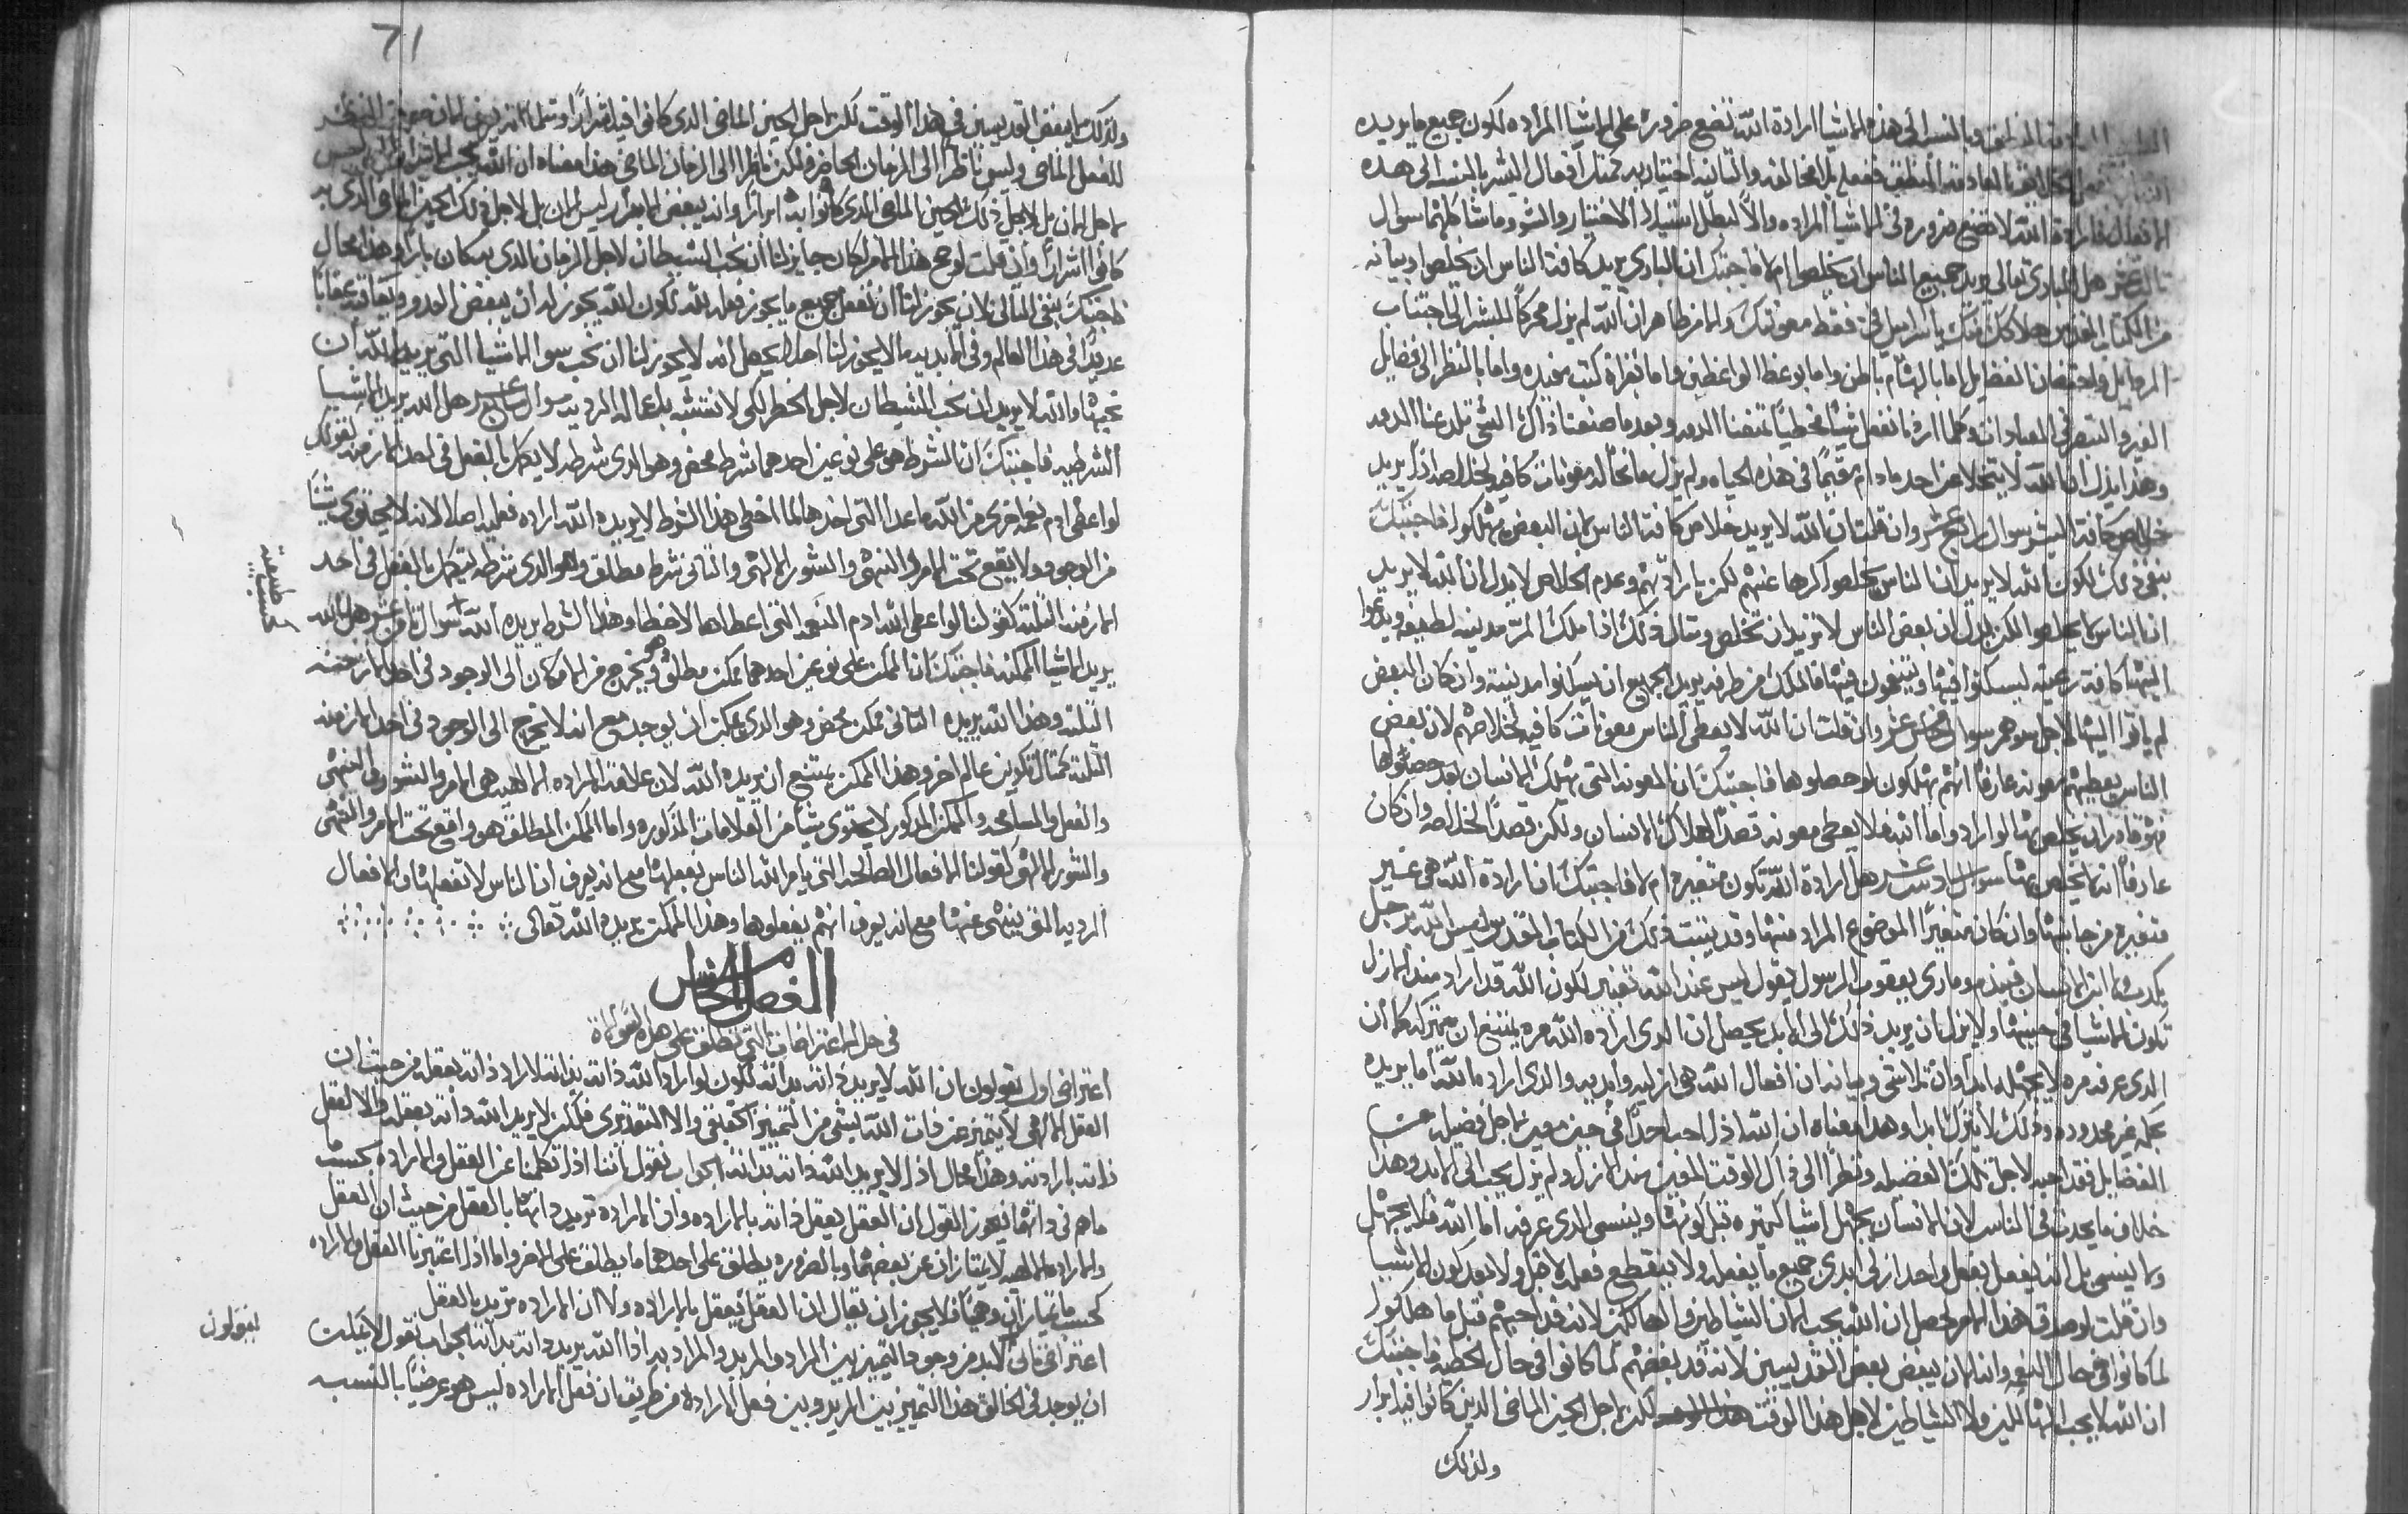 وبالنسبه الى هذه الاشيا ارادة الله تضع ضروره على الاشيا المراده لكون جميع ما يريده
فارادة الله لا تضع ضروره في الاشيا المراده والا لبطل استيلا الاختيار والشور وما شاكلهما سوال
ثالث عشر هل الباري تعالى يريد جميع الناس ان يخلصوا ام لا فاجبتك ان الباري يريد كافة الناس ان يخلصوا وبيانه
من الكتاب المقدس هلاكك منك يا اسراييل في فقط معونتك والامر ظاهر ان الله لم يزل محركا للبشر الى اجتناب
الردايل واحتضان الفضايل اما بالهام باطن واما بوعظ الواعظين واما بقراة كتب مفيده واما بالنظر الى فضايل
الغير والتبصر في العبادات وكلما اردنا نفعل شيا مخطيا تمنعنا الذمه وبعد ما صنعنا ذاك الشي تلدعنا الذمه
وهذا يدل ان الله لا يتخلا عن احد ما دام مقيما في هذه الحياه ولم يزل مانحا له معونات كافيه لخلاصه اذا يريد
خلاص كافة البشر سوال رابع عشر وان قلت ان الله لا يريد خلاص كافة الناس لان البعض يهلكوا فاجبتك
بنفي ذلك لكون الله لا يريد ان الناس يخلصوا كرها عنهم لكن بارادتهم وعدم الخلاص لا يدل ان الله لا يريد
ان الناس يخلصوا لكن يدل ان بعض الناس لا تريد ان تخلص ومثال ذلك اذا ملك امر مدينه لطيفه ويدعوا
اليها كافة رعيته ليسكنوا فيها ويتنعمون فيها فالملك من طرفه يريد الجميع ان يسكنوا مدينته وان كان البعض
لم ياتوا اليها لاجل سوهم سوال خامس عشر وان قلت ان الله لا يعطي الناس معونات كافيه لخلاصهم لان بعض
الناس يعطيهم معونه عارفا انهم يهلكون لو حصلوها فاجبتك ان المعونه التي يهلك الانسان بعد حصولها
فهو قادر ان يخلص بها لو اراد واما الله فلا يعطي معونه قصدا لهلاك الانسان ولكن قصدا لخلاصه وان كان
عارفا انه لا يخلص بها سوال سادس عشر هل ارادة الله تكون متغيره ام لا فاجبتك ان ارادة الله هي غير
متغيره من جانبها وان كان متغيرا الموضوع المراد منها وقد يثبت ذلك من الكتاب المقدس ليس الله برجل
يكذب ولا ابن الانسان فيندم وماري يعقوب الرسول يقول ليس عند الله تغيير لكون الله قد اراد منذ الازل
تكون الاشيا في حينها ولا يزال ان يريد ذلك الى الابد يحصل ان الذي اراده الله مره يمتنع ان يتركه كما ان
الذي عرفه مره لا يجهله ابدا وان تلاشى وبيانه ان افعال الله هي ازليه وابديه والذي اراده الله اما يريده
بمحبه غير محدوده وذلك لا يزال ابدا وهذا معناه ان الله اذا احب احدا في حين معين لاجل فضيله من
الفضايل فقد احبه لاجل تلك الفضيله ونظرا الى ذاك الوقت المعين منذ الازل ولم يزل يحبه الى الابد وهذا
خلاف ما يحدث في الناس لان الانسان يجهل اشيا كثيره قبل كونها وينسى الذي عرفه اما الله فلا يجهل
ولا ينسى بل انه يفعل بفعل واحد ازلي ابدي جميع ما يفعله ولا ينقطع فعله لا قبل ولا بعد كون الاشيا
وان قلت لو صدق هذا الامر لحصل ان الله يحب الان الشياطين والهالكين لانه قد احبهم قبل ما هلكوا
لما كانوا في حال النعمه وانه الان يبغض بعض القديسين لانه قد بغضهم لما كانوا في حال الخطيه فاجبتك
ان الله لا يحب الهالكين ولا الشياطين لاجل هذا الوقت لكن لاجل الحين الماضي الذين كانوا فيه ابرار
ولذلك
71
ولذلك لا يبغض القديسين في هذا الوقت لكن لاجل الحين الماضي الذي كانوا فيه اشرارا
للفعل الماضي وليس ناظرا الى الزمان الحاضر ولكن ناظرا الى الزمان الماضي هذا معناه ان الله يحب
لاجل الان بل لاجل ذلك الحين الماضي الذي كانوا به ابرارا وانه يبغض الابرار ليس الان بل لاجل ذلك الحين الماضي الذي به
كانوا اشرارا وان قلت لو صح هذا الامر لكان جايز لنا ان نحب الشيطان لاجل الزمان الذي به كان بارا وهذا محال
فاجبتك بنفي التالي لان يجوز لنا ان نفعل جميع ما يجوز فعله لله لكون الله يجوز له ان يبغض العدو ويعاقبه عقابا
عديدا في هذا العالم وفي الابديه ما لا يجوز لنا اصلا يحصل انه لا يجوز لنا ان نحب سوا الاشيا التي يريد الله ان
نحبها والله لا يريد ان نحب الشيطان لاجل الخطر لكي لا نتشبه باعماله الرديه سوال سابع عشر هل الله يريد الاشيا
الشرطيه فاجبتك ان الشرط هو على نوعين احدهما شرط محض وهو الذي شرطه لا يكمل بالفعل في احد الازمنه كقولك
لو اعطى ادم نعمه اخرى من الله ما عدا التي اخذها لما اخطى هذا الشرط لا يريده الله اراده فعليه اصلا لانه لا يحتوي شيا
من الوجود ولا يقع تحت الامر والنهي والشور الالهي والثاني شرط مطلق وهو الذي شرطه يكمل بالفعل في احد
الازمنه الثلثه كقولنا لو اعطى الله ادم النعمه التي اعطاها لاخطا وهذا الشرط يريده الله سوال ثامن عشر هل الله
طبيعية
يريد الاشيا الممكنه فاجبتك ان الممكن على نوعين احدهما ممكن مطلق وهو يخرج من الامكان الى الوجود في احد الازمنه
الثلثه وهذا الله يريده الثاني ممكن محض وهو الذي يمكن ان يوجد مع انه لا يخرج الى الوجود في احد الازمنه
الثلثه كمثال تكوين عالم اخر وهذا الممكن يمتنع ان يريده الله لان علامة الاراده الالهيه هي الامر والشور والنهي
والفعل والمسامحه والممكن المذكور لا يحتوي شيا من العلامات المذكوره واما الممكن المطلق هو واقع تحت الامر والنهي
والشور الالهي كقولنا الافعال الصالحه التي يامر الله الناس بفعلها مع انه يعرف ان الناس لا تفعلها والافعال
الرديه التي ينهي عنها مع انه يعرف انهم يفعلوها وهذا الممكن يريده الله تعالى
الفصل الخامس
في حل الاعتراضات التي تطلق على هذه السوالاة
اعتراض اول يقولون ان الله لا يريد ذاته بذاته لكون لو اراد الله ذاته بذاته لاراد ذاته بعقله من حيث ان
العقل الالهي لا يتميز عن ذات الله بشي من التمييز الحقيقي والا التقديري فلكن لا يريد الله ذاته بعقله والا لعقل
ذاته بارادته وهذا محال اذا لا يريد الله ذاته بذاته الجواب نقول اننا اذا تكلمنا عن العقل والاراده بحسب
ما هم في ذاتهما فيجوز القول ان العقل يعقل ذاته بالاراده وان الاراده تريد ذاتها بالعقل من حيث ان العقل
والاراده الالهيه لا يمتازان عن بعضهما وبالضروره يطلق على احدهما ما يطلق على الاخر واما اذا اعتبرنا العقل والاراده
كحسب ما يمتازان وهميا فلا يجوز ان يقال ان العقل يعقل بالاراده ولا ان الاراده تريد بالعقل
اعتراض ثاني لا بد من وجود التمييز بين المراد والمريد والمراد به اذا الله يريد ذاته بذاته الجواب نقول لا يمكن
يقولون
ان يوجد في الخالق هذا التمييز بين المريد وبين فعل الاراده من طريق ان فعل الاراده ليس هو عرضيا بالنسبه